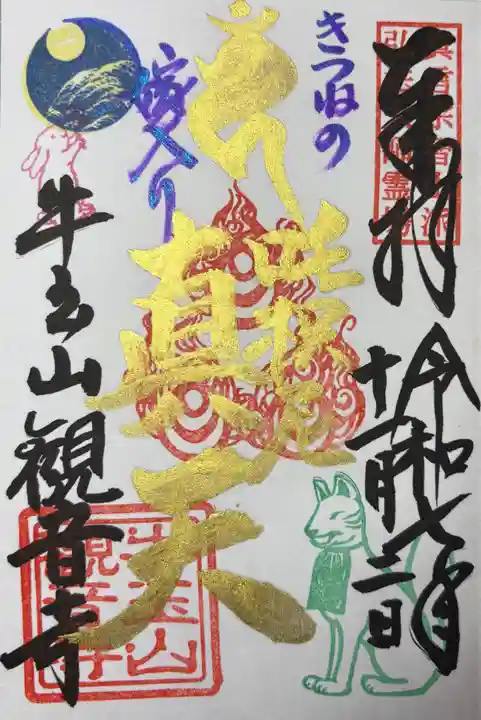 奉拝
令和七年
十一月二日
きつねの
嫁入り
眞天
牛玉山観音寺
牛玉山
観音寺